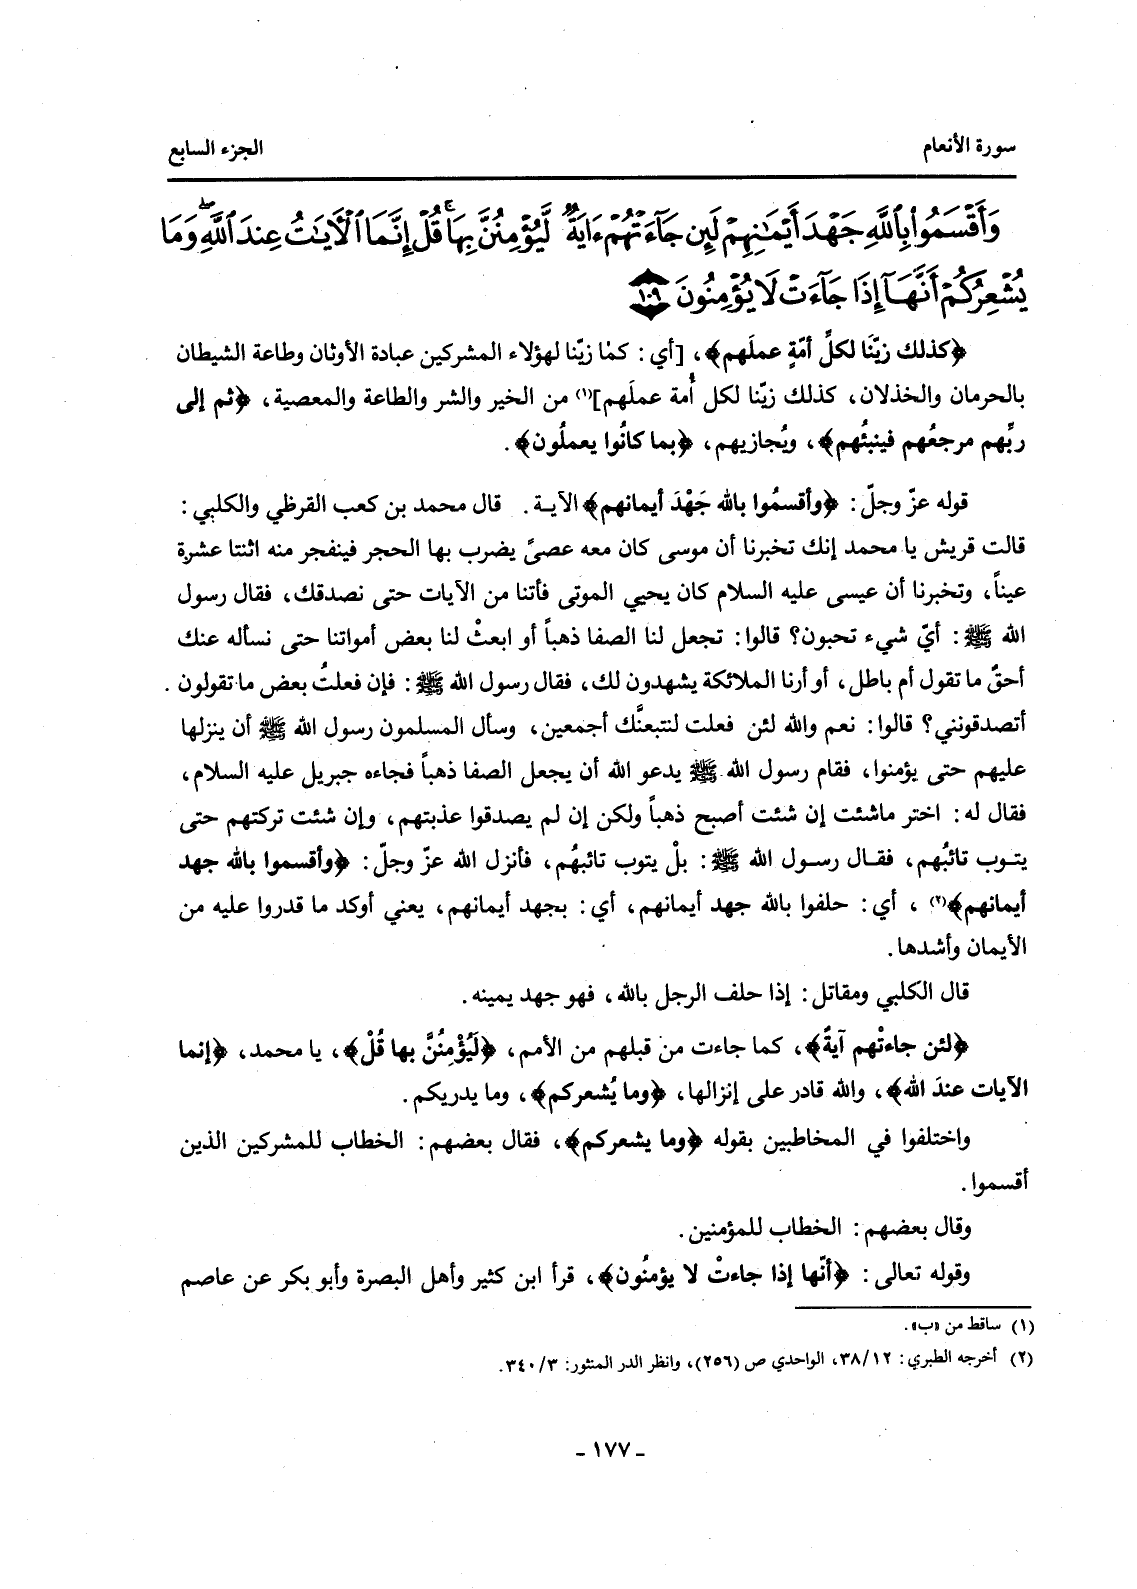 سورة الأنعام
الجزء السابع
وَأَقْسَمُوا۟ بِٱللَّهِ جَهْدَ أَيْمَٰنِهِمْ لَئِن جَآءَتْهُمْ ءَايَةٌ لَّيُؤْمِنُنَّ بِهَا ۚ قُلْ إِنَّمَا ٱلْءَايَٰتُ عِندَ ٱللَّهِ ۖ وَمَا
يُشْعِرُكُمْ أَنَّهَآ إِذَا جَآءَتْ لَا يُؤْمِنُونَ ١٠٩
﴿كذلك زيّنَا لكلِّ أمّةٍ عملَهم﴾، [أي: كما زيّنا لهؤلاء المشركين عبادة الأوثان وطاعة الشيطان
بالحرمان والخذلان، كذلك زيّنا لكل أُمة عملَهم](١) من الخير والشر والطاعة والمعصية، ﴿ثم إلى
ربِّهم مرجعُهم فينبئُهم﴾، ويُجازيهم، ﴿بما كانُوا يعملُون﴾.
قوله عزّ وجلّ: ﴿وأقسمُوا بالله جَهْدَ أيمانهم﴾ الآيـة. قال محمد بن كعب القرظي والكلبي:
قالت قريش يا محمد إنك تخبرنا أن موسى كان معه عصىً يضرب بها الحجر فينفجر منه اثنتا عشرة
عيناً، وتخبرنا أن عيسى عليه السلام كان يحيي الموتى فأتنا من الآيات حتى نصدقك، فقال رسول
الله ﷺ: أيّ شيء تحبون؟ قالوا: تجعل لنا الصفا ذهباً أو ابعثْ لنا بعض أمواتنا حتى نسأله عنك
أحقّ ما تقول أم باطل، أو أرنا الملائكة يشهدون لك، فقال رسول الله ﷺ: فإن فعلتُ بعض ما تقولون.
أتصدقونني؟ قالوا: نعم والله لئن فعلت لنتبعنَّك أجمعين، وسأل المسلمون رسول الله ﷺ أن ينزلها
عليهم حتى يؤمنوا، فقام رسول الله ﷺ يدعو الله أن يجعل الصفا ذهباً فجاءه جبريل عليه السلام،
فقال له: اختر ماشئت إن شئت أصبح ذهباً ولكن إن لم يصدقوا عذبتهم، وإن شئت تركتهم حتى
يتـوب تائبُهم، فقـال رسـول الله ﷺ: بلْ يتوب تائبهُم، فأنزل الله عزّ وجلّ: ﴿وأقسموا بالله جهد
أيمانهم﴾(٢)، أي: حلفوا بالله جهد أيمانهم، أي: بجهد أيمانهم، يعني أوكد ما قدروا عليه من
الأيمان وأشدها.
قال الكلبي ومقاتل: إذا حلف الرجل بالله، فهو جهد يمينه.
﴿لئن جاءتْهم آيةً﴾، كما جاءت من قبلهم من الأمم، ﴿لَيُؤْمِنُنَّ بها قُلْ﴾، يا محمد، ﴿إنما
الآيات عندَ الله﴾، والله قادر على إنزالها، ﴿وما يُشعركم﴾، وما يدريكم.
واختلفوا في المخاطبين بقوله ﴿وما يشعركم﴾، فقال بعضهم: الخطاب للمشركين الذين
أقسموا.
وقال بعضهم: الخطاب للمؤمنين.
وقوله تعالى: ﴿أنّها إذا جاءتْ لا يؤمنُون﴾، قرأ ابن كثير وأهل البصرة وأبو بكر عن عاصم
(١) ساقط من «ب».
(٢) أخرجه الطبري: ٣٨/١٢، الواحدي ص (٢٥٦)، وانظر الدر المنثور: ٣٤٠/٣.
- ١٧٧ -